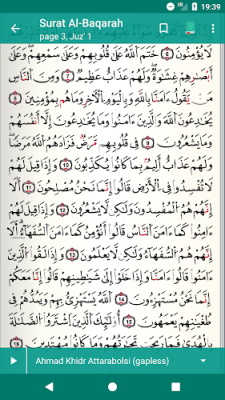 19:39
Surat Al-Baqarah
page 3, Juz' 1
لَا يُؤْمِنُونَ ٦ خَتَمَ ٱللَّهُ عَلَىٰ قُلُوبِهِمْ وَعَلَىٰ سَمْعِهِمْ وَعَلَىٰٓ
أَبْصَٰرِهِمْ غِشَٰوَةٌ وَلَهُمْ عَذَابٌ عَظِيمٌ ٧ وَمِنَ ٱلنَّاسِ
مَن يَقُولُ ءَامَنَّا بِٱللَّهِ وَبِٱلْيَوْمِ ٱلْءَاخِرِ وَمَا هُم بِمُؤْمِنِينَ
٨ يُخَٰدِعُونَ ٱللَّهَ وَٱلَّذِينَ ءَامَنُوا۟ وَمَا يَخْدَعُونَ إِلَّآ أَنفُسَهُمْ
وَمَا يَشْعُرُونَ ٩ فِى قُلُوبِهِم مَّرَضٌ فَزَادَهُمُ ٱللَّهُ مَرَضًا
وَلَهُمْ عَذَابٌ أَلِيمٌۢ بِمَا كَانُوا۟ يَكْذِبُونَ ١٠ وَإِذَا قِيلَ لَهُمْ
لَا تُفْسِدُوا۟ فِى ٱلْأَرْضِ قَالُوٓا۟ إِنَّمَا نَحْنُ مُصْلِحُونَ ١١ أَلَآ
إِنَّهُمْ هُمُ ٱلْمُفْسِدُونَ وَلَٰكِن لَّا يَشْعُرُونَ ١٢ وَإِذَا قِيلَ لَهُمْ
ءَامِنُوا۟ كَمَآ ءَامَنَ ٱلنَّاسُ قَالُوٓا۟ أَنُؤْمِنُ كَمَآ ءَامَنَ ٱلسُّفَهَآءُ أَلَآ
إِنَّهُمْ هُمُ ٱلسُّفَهَآءُ وَلَٰكِن لَّا يَعْلَمُونَ ١٣ وَإِذَا لَقُوا۟ ٱلَّذِينَ
ءَامَنُوا۟ قَالُوٓا۟ ءَامَنَّا وَإِذَا خَلَوْا۟ إِلَىٰ شَيَٰطِينِهِمْ قَالُوٓا۟ إِنَّا مَعَكُمْ
إِنَّمَا نَحْنُ مُسْتَهْزِءُونَ ١٤ ٱللَّهُ يَسْتَهْزِئُ بِهِمْ وَيَمُدُّهُمْ فِى
طُغْيَٰنِهِمْ يَعْمَهُونَ ١٥ أُو۟لَٰٓئِكَ ٱلَّذِينَ ٱشْتَرَوُا۟ ٱلضَّلَٰلَةَ
بِٱلْهُدَىٰ فَمَا رَبِحَت تِّجَٰرَتُهُمْ وَمَا كَانُوا۟ مُهْتَدِينَ
Ahmad Khidr Attarabolsi (gapless)